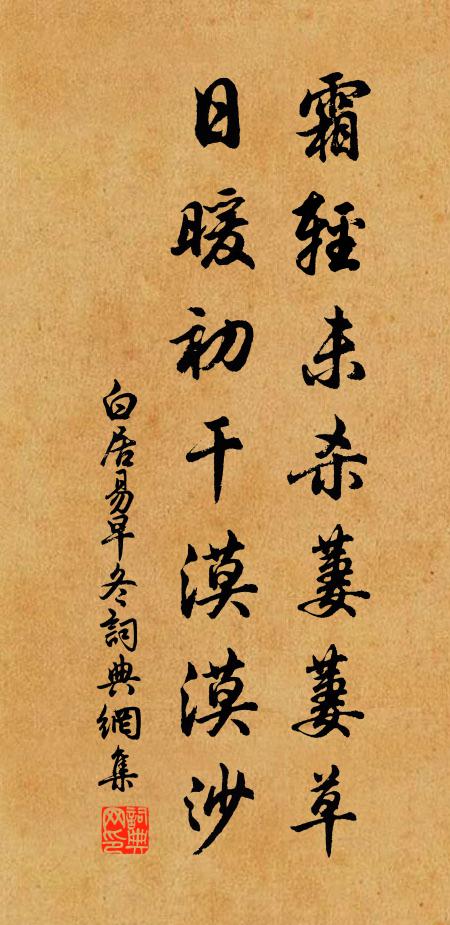 霜輕未杀萋萋草
日暖初干漠漠沙
白居易早冬詞典網集
詞典网印